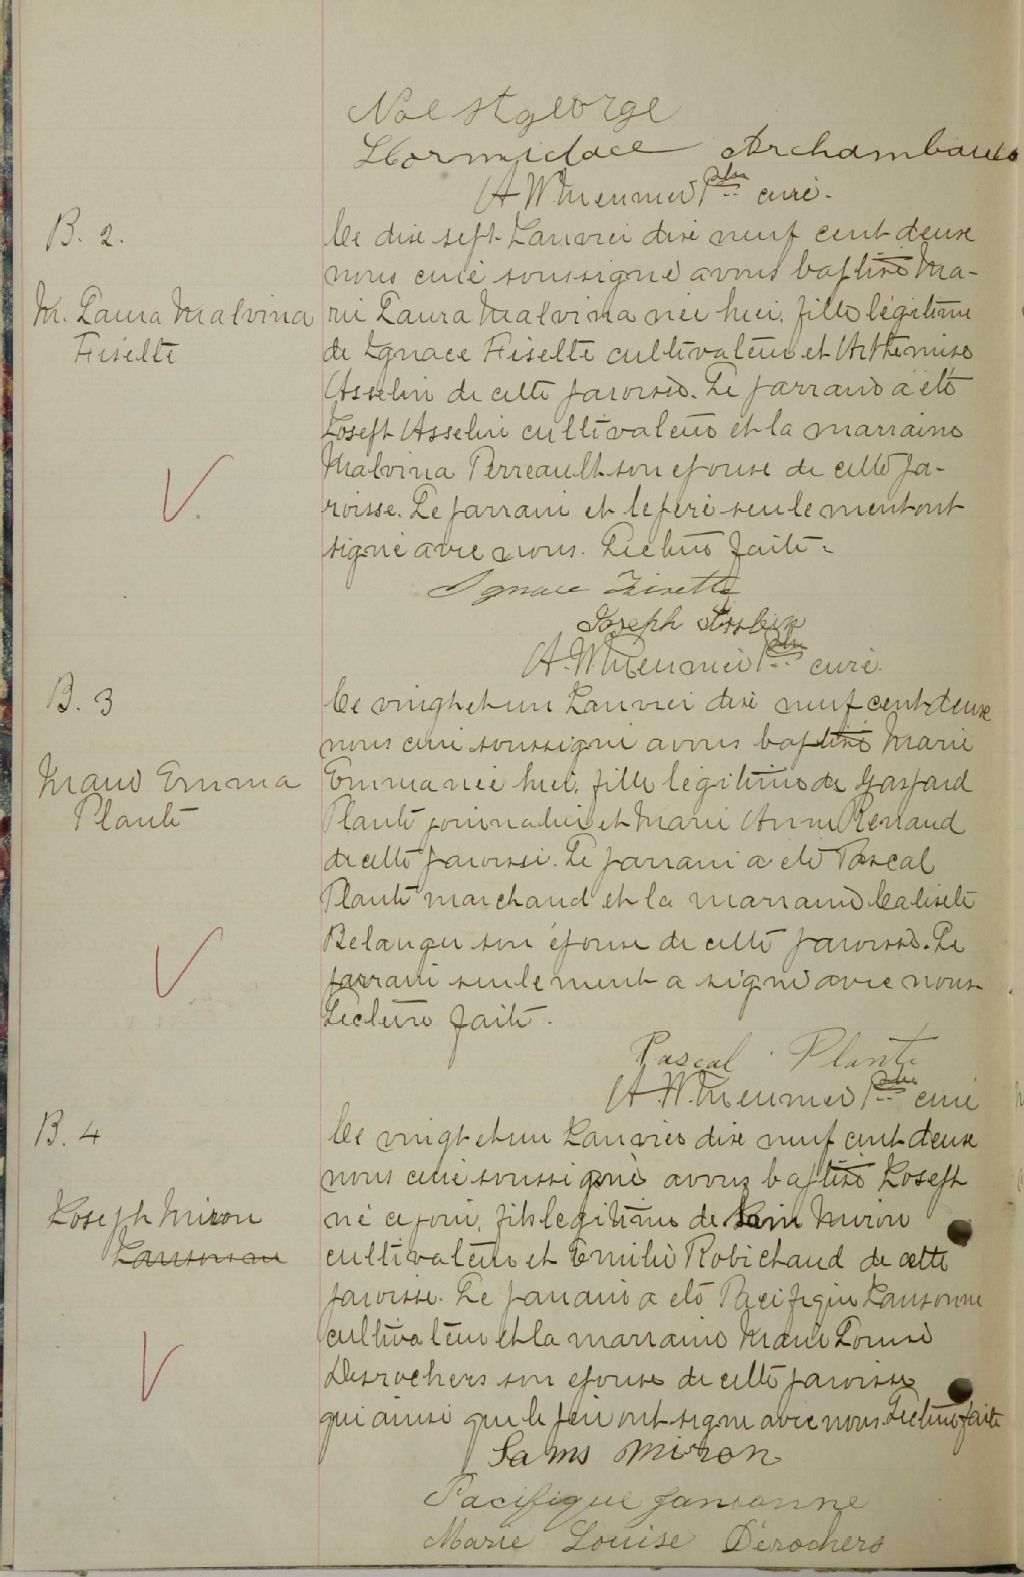 Noe st george
Hormidace Archambault
A W Meunier Ptre curé.
B. 2.
Le dix sept Janvier dix neuf cent deux
nous curé soussigné avons baptisé Ma-
M. Laura Malvina
rie Laura Malvina née hier, fille légitime
Fisette
de Ignace Fisette cultivateur et Arthemise
Asselin de cette paroisse. Le parrain a été
Joseph Asselin cultivateur et la marraine
Malvina Perreault son epouse de cette pa-
roisse. Le parrain et le père seulement ont
signé avec nous. Lecture faite.
Ignace Fisette
Joseph Asselin
A. W Meunier Ptre curé
B. 3
Le vingt et un Janvier dix neuf cent deux
nous curé soussigné avons baptisé Marie
Marie Emma
Emma née hier, fille légitime de Gaspard
Plante
Plante journalier et Marie Anne Renaud
de cette paroisse. Le parrain a été Pascal
Plante marchand et la marraine
Belanger son épouse de cette paroisse. Le
parrain seulement a signé avec nous
Lecture faite.
Pascal Plante
A. W. Meunier Ptre curé
B. 4
Le vingt et un Janvier dix neuf cent deux
nous curé soussigné avons baptisé Joseph
Joseph Miron
né ce jour, fils legitime de Sam Miron
Jansonne
cultivateur et Emilie Robichaud de cette
paroisse. Le parrain a été Pacifique Jansonne
cultivateur et la marraine Marie Louise
Desrochers son epouse de cette paroisse
qui ainsi que le père ont signé avec nous. Lecture faite
Sams Miron
Pacifique Jansonne
Marie Louise Dérochers